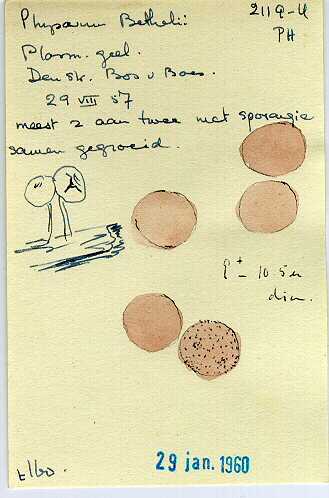 Physarum Bethelii
2119-U
PH
Plasm. geel.
Den Sk. Bos v Baes.
29 VIII 57
meest 2 aan twee met sporangia
samen gegroeid.
± 10.5 u
diam.
t/60.
29 jan. 1960